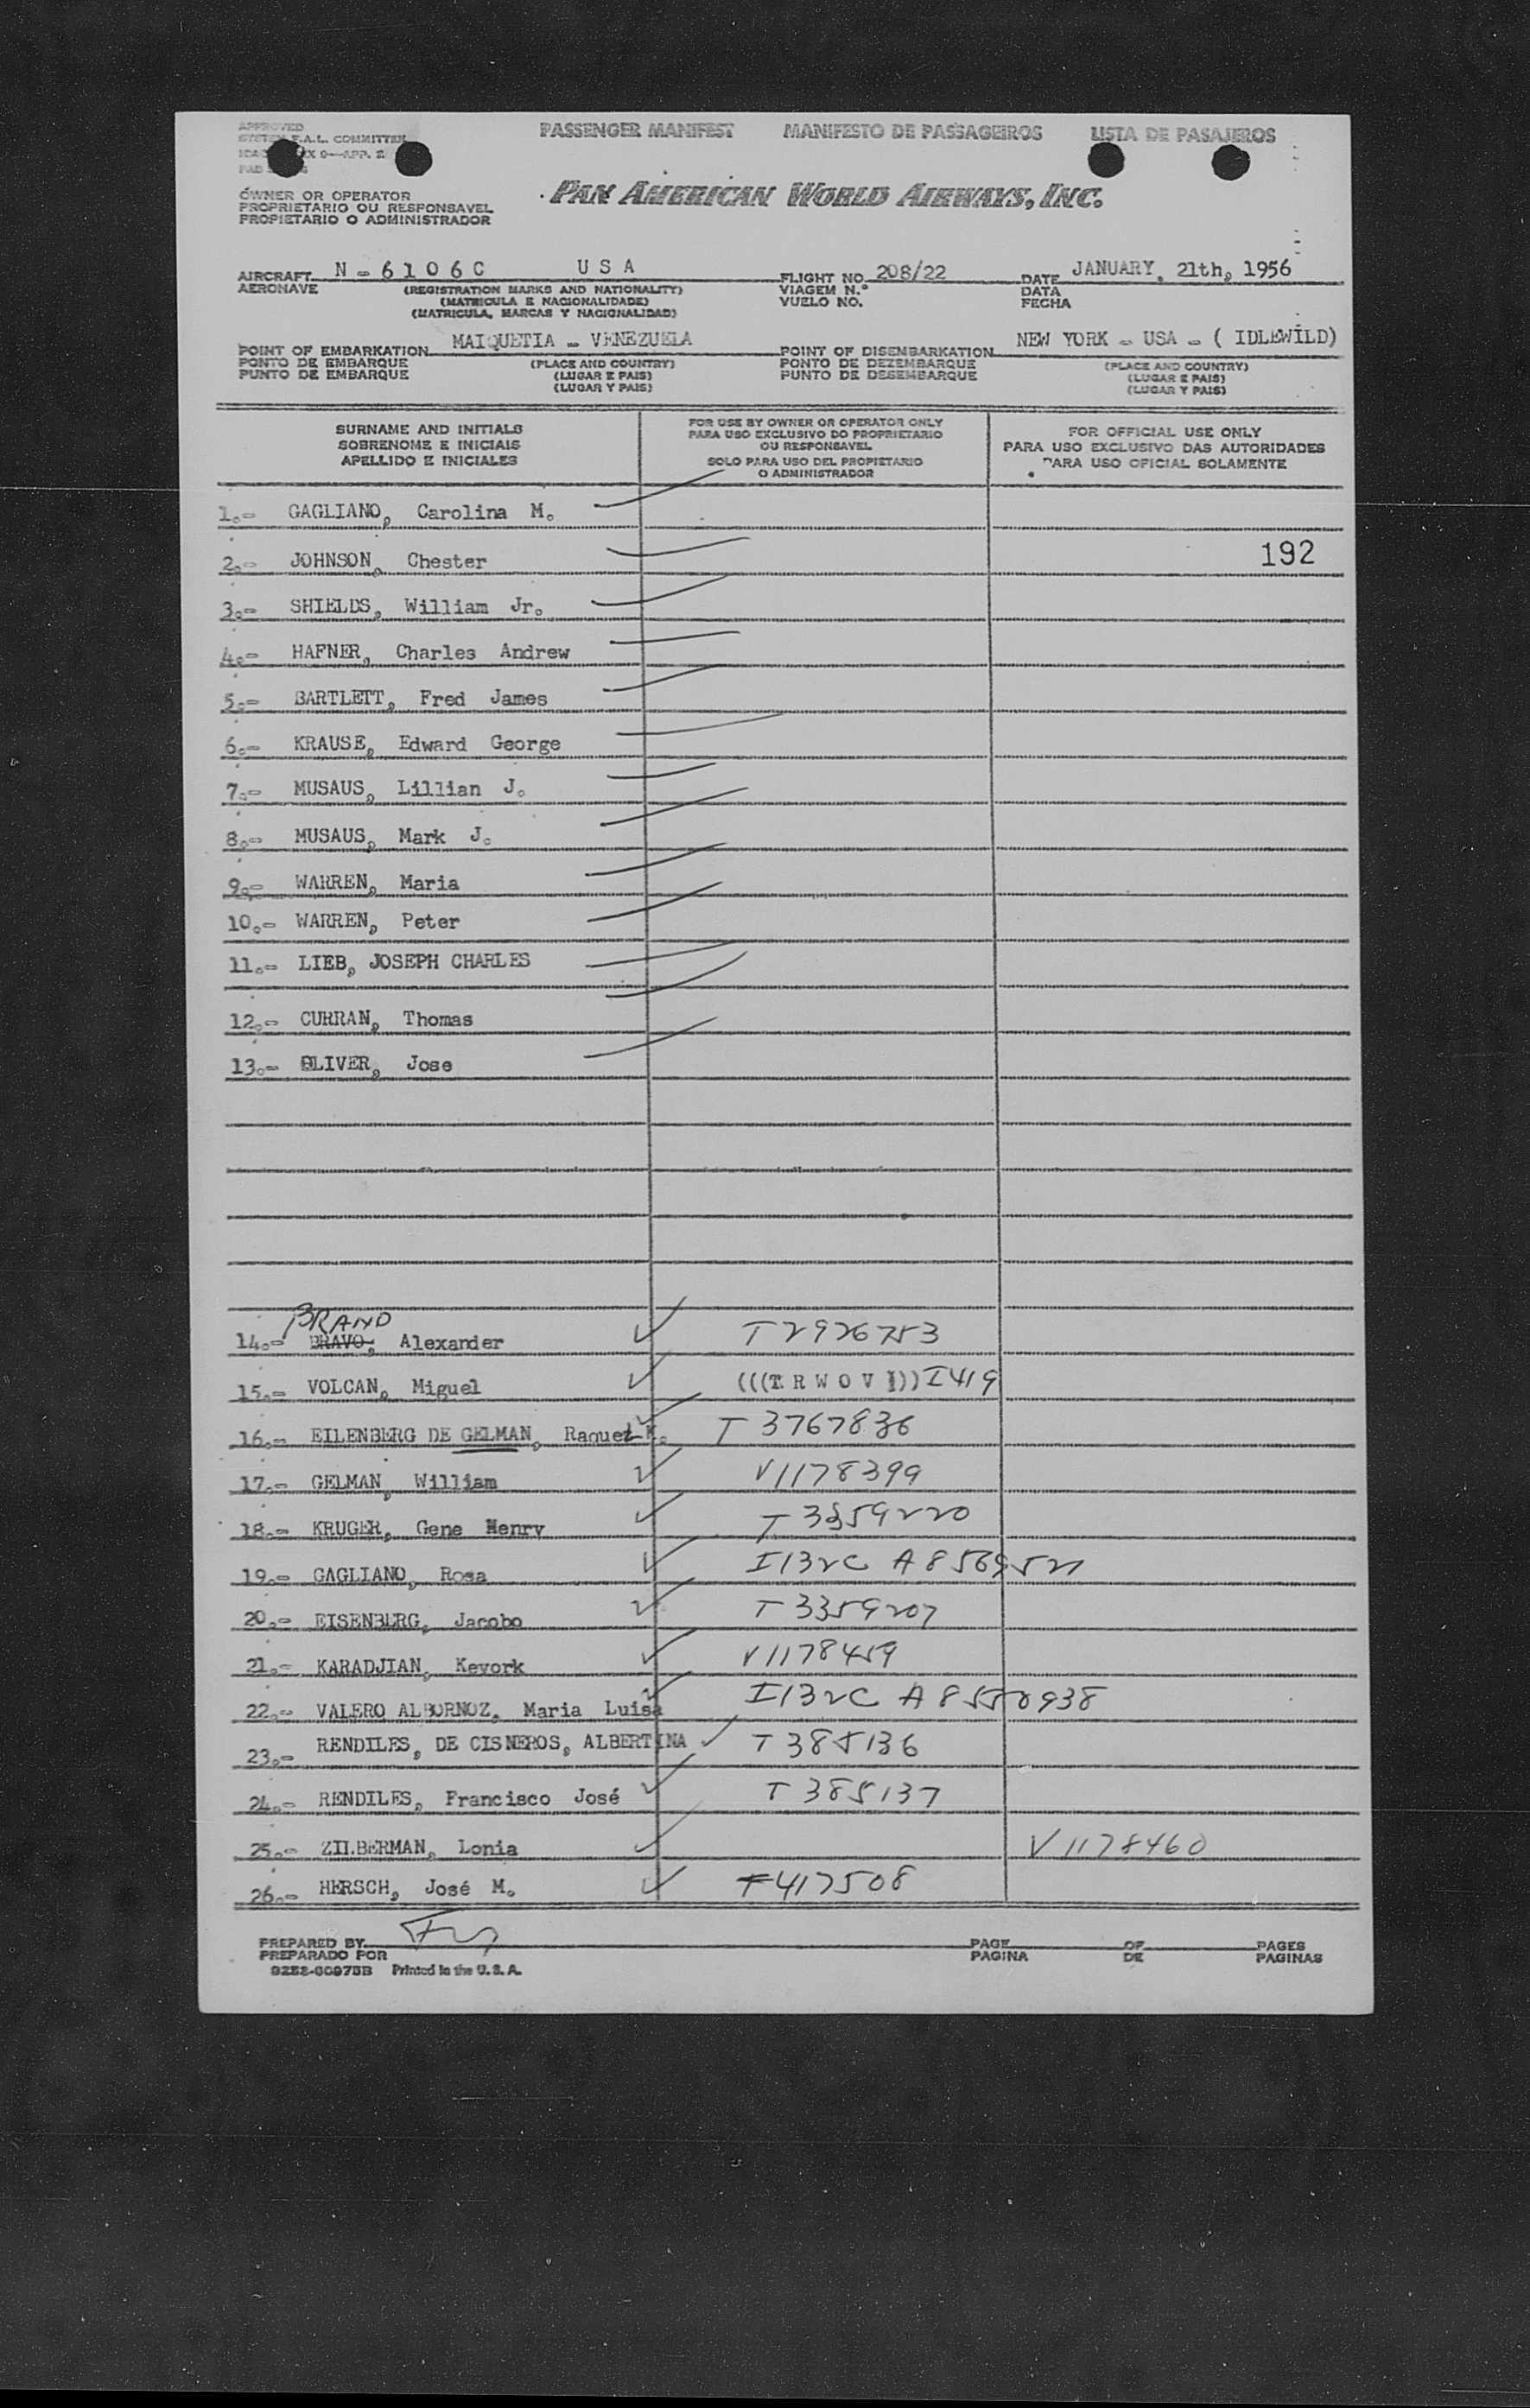 APPROVED
SYSTEM F.A.L. COMMITTEE
PASSENGER MANIFEST MANIFESTO DE PASSAGEIROS LISTA DE PASAJEROS
OWNER OR OPERATOR
PROPRIETARIO OU RESPONSAVEL
PROPIETARIO O ADMINISTRADOR
PAN AMERICAN WORLD AIRWAYS, INC.
AIRCRAFT N-6106C USA FLIGHT NO. 208/22 DATE JANUARY, 21th, 1956
AERONAVE (REGISTRATION MARKS AND NATIONALITY) VIAGEM N.º DATA
(MATRICULA E NACIONALIDADE) VUELO NO. FECHA
(MATRICULA, MARCAS Y NACIONALIDAD)
POINT OF EMBARKATION MAIQUETIA - VENEZUELA POINT OF DISEMBARKATION NEW YORK - USA - ( IDLEWILD)
PONTO DE EMBARQUE (PLACE AND COUNTRY) PONTO DE DEZEMBARQUE (PLACE AND COUNTRY)
PUNTO DE EMBARQUE (LUGAR E PAIS) PUNTO DE DESEMBARQUE (LUGAR E PAIS)
(LUGAR Y PAIS) (LUGAR Y PAIS)
SURNAME AND INITIALS
SOBRENOME E INICIAIS
APELLIDO E INICIALES
FOR USE BY OWNER OR OPERATOR ONLY
PARA USO EXCLUSIVO DO PROPRIETARIO
OU RESPONSAVEL
SOLO PARA USO DEL PROPIETARIO
O ADMINISTRADOR
FOR OFFICIAL USE ONLY
PARA USO EXCLUSIVO DAS AUTORIDADES
PARA USO OFICIAL SOLAMENTE
1.- GAGLIANO, Carolina M.
2.- JOHNSON, Chester 192
3.- SHIELDS, William Jr.
4.- HAFNER, Charles Andrew
5.- BARTLETT, Fred James
6.- KRAUSE, Edward George
7.- MUSAUS, Lillian J.
8.- MUSAUS, Mark J.
9.- WARREN, Maria
10.- WARREN, Peter
11.- LIEB, JOSEPH CHARLES
12.- CURRAN, Thomas
13.- OLIVER, Jose
BRAND
14.- BRAVO, Alexander T2926753
15.- VOLCAN, Miguel (((T R W O V I))) I419
16.- EILENBERG DE GELMAN, Raquel K. T 3767836
17.- GELMAN, William V1178399
18.- KRUGER, Gene Henry T 3359220
19.- GAGLIANO, Rosa I132C A8569521
20.- EISENBERG, Jacobo T 3359207
21.- KARADJIAN, Kevork V1178459
22.- VALERO ALBORNOZ, Maria Luisa I132C
23.- RENDILES, DE CISNEROS, ALBERTINA T 385136
24.- RENDILES, Francisco José T 385137
25.- ZILBERMAN, Lonia V1178460
26.- HERSCH, José M. F417508
PREPARED BY PAGE OF PAGES
PREPARADO POR PAGINA DE PAGINAS
Printed in the U.S.A.